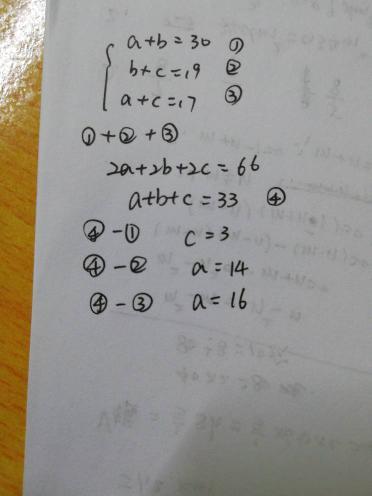 { a+b=30 ①
b+c=19 ②
a+c=17 ③
①+②+③
2a+2b+2c=66
a+b+c=33 ④
④-① c=3
④-② a=14
④-③ a=16